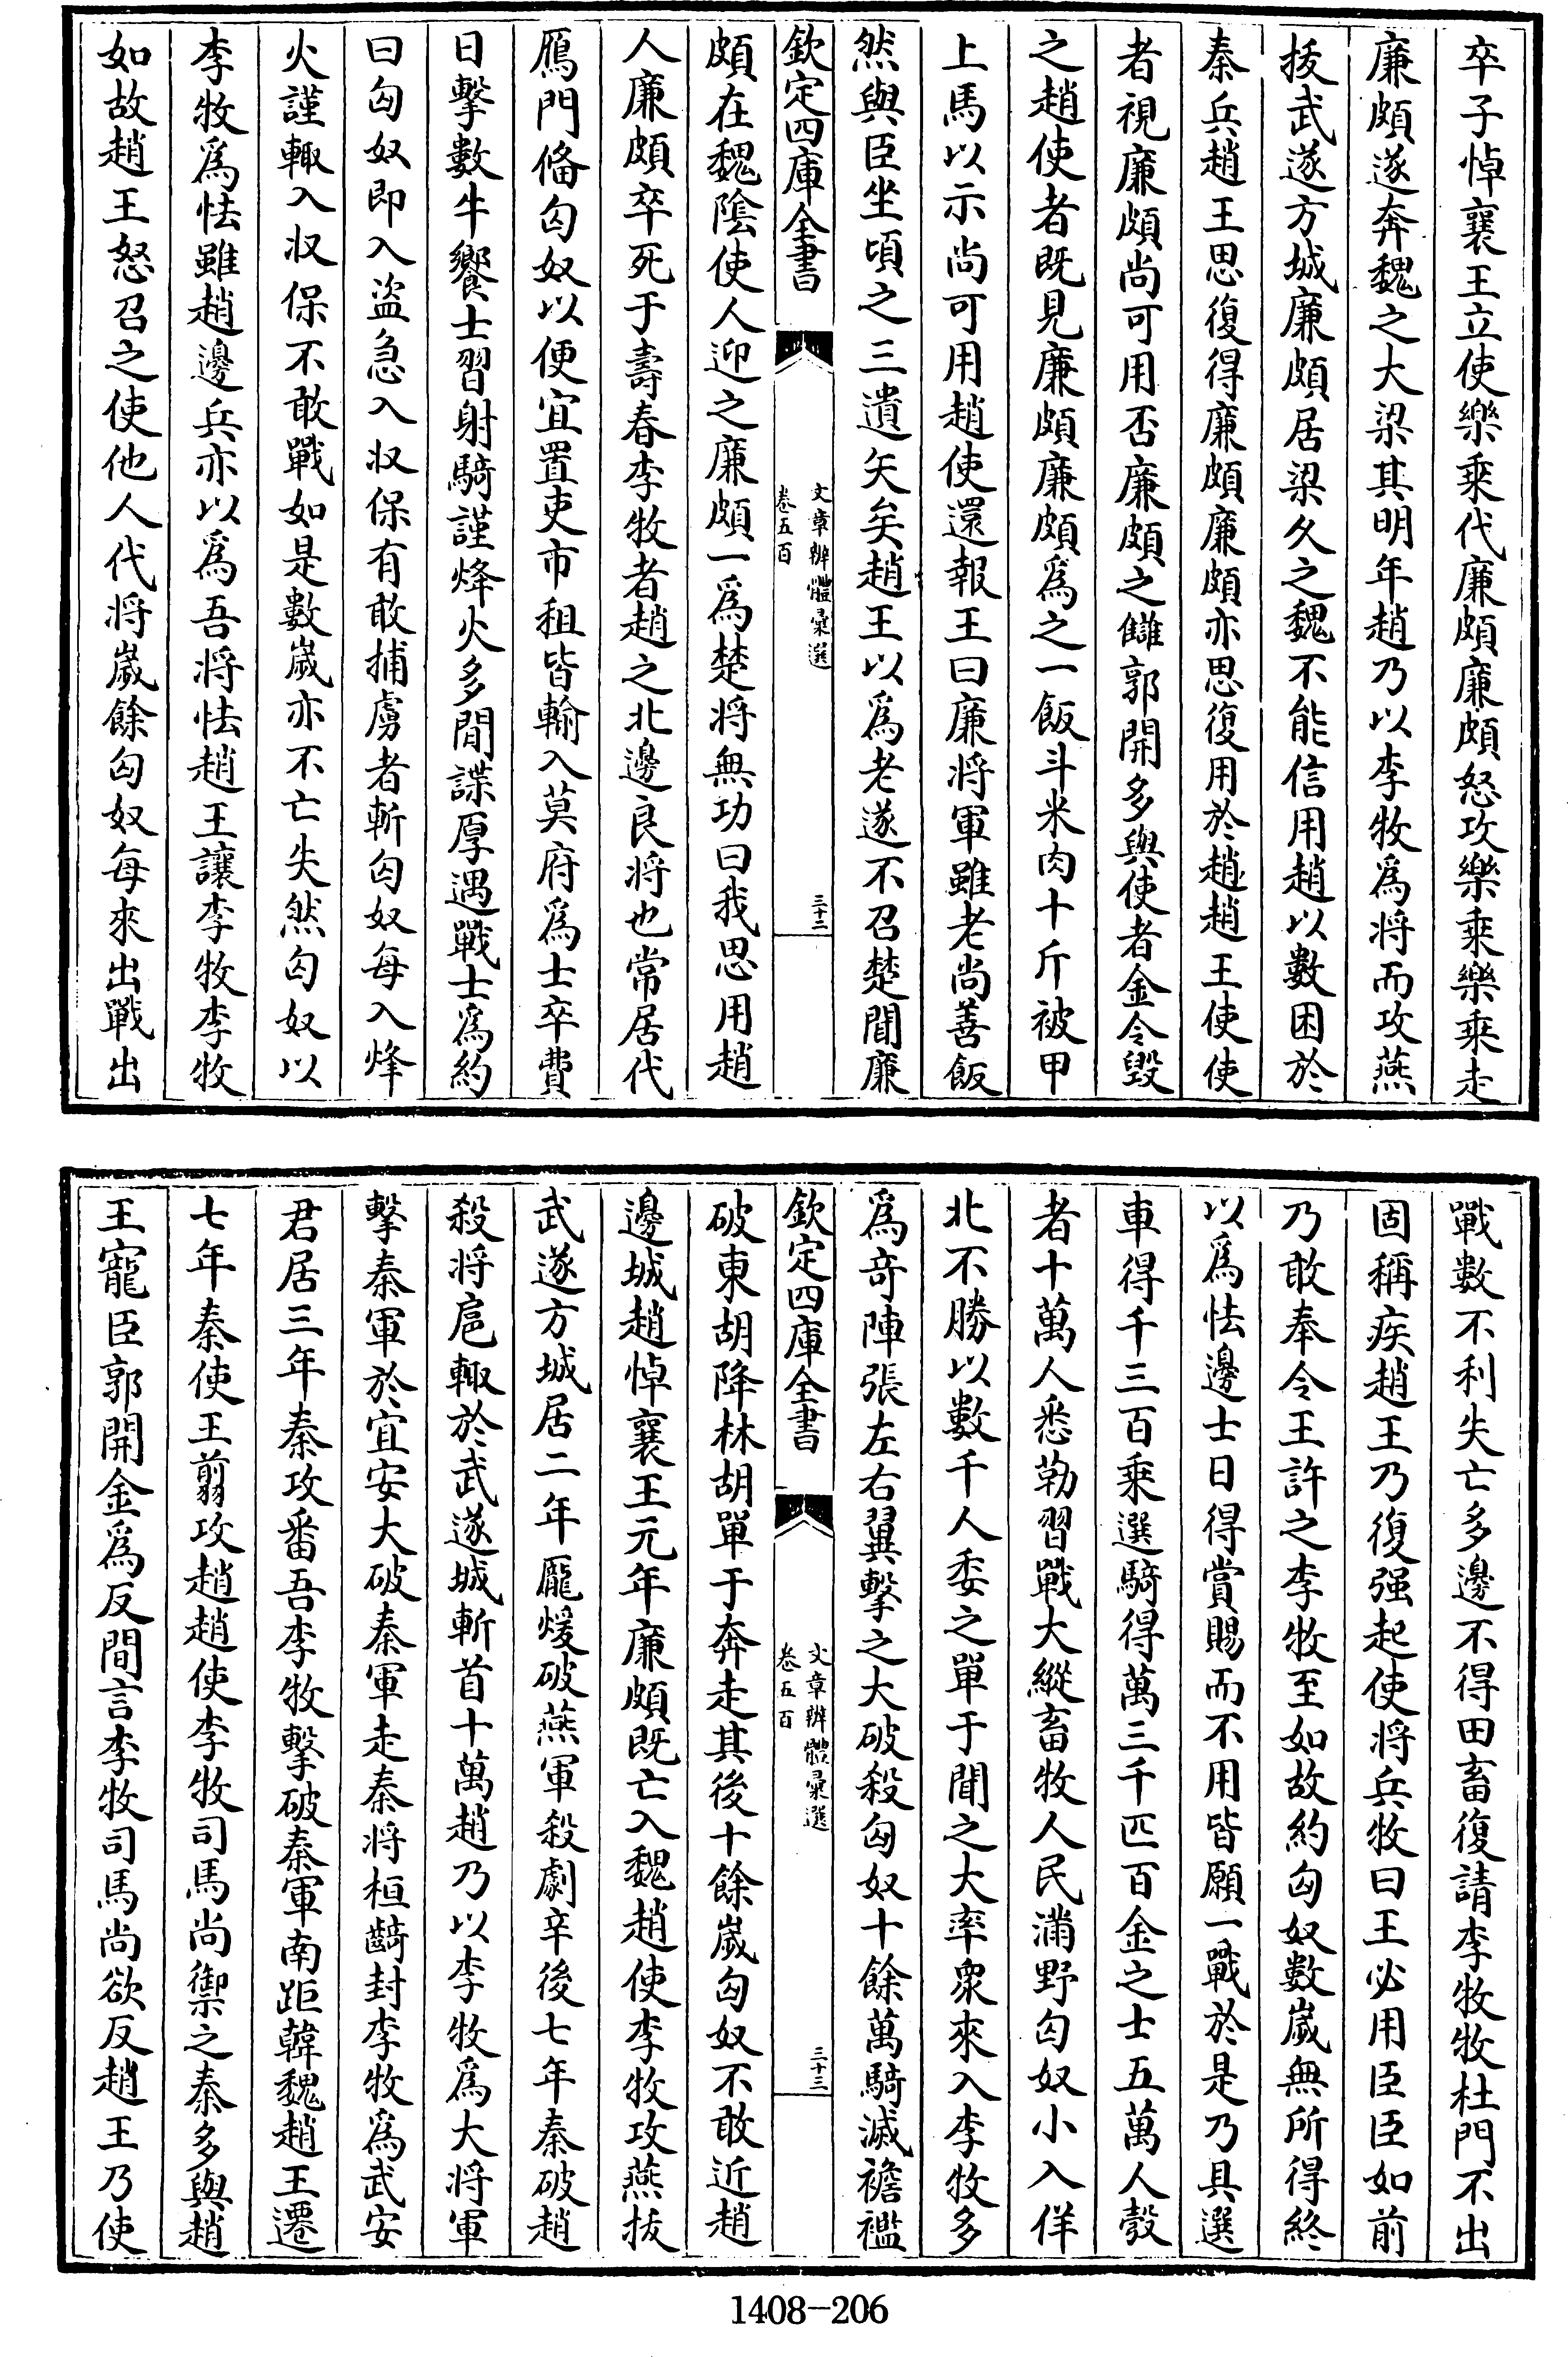 卒子悼襄王立使樂乘代廉頗廉頗怒攻樂乘樂乘走
廉頗遂奔魏之大梁其明年趙乃以李牧爲将而攻燕
㧞武遂方城廉頗居梁久之魏不能信用趙以數困於
秦兵趙王思復得廉頗廉頗亦思復用於趙趙王使使
者視廉頗尚可用否廉頗之讎郭開多與使者金令毀
之趙使者既見廉頗廉頗爲之一飯斗米肉十斤被甲
上馬以示尚可用趙使還報王曰廉将軍雖老尚善飯
然與臣坐頃之三遺矢矣趙王以爲老遂不召楚聞廉
欽定四庫全書
文章辨體彚選
卷五百
三十二
頗在魏陰使人迎之廉頗一爲楚将無功曰我思用趙
人廉頗卒死于壽春李牧者趙之北邊良将也常居代
鴈門備匈奴以便宜置吏市租皆輸入莫府爲士卒費
日擊數牛饗士習射騎謹烽火多間諜厚遇戰士爲約
曰匈奴即入盜急入收保有敢捕虜者斬匈奴每入烽
火謹輙入收保不敢戰如是數歲亦不亡失然匈奴以
李牧爲怯雖趙邊兵亦以爲吾将怯趙王讓李牧李牧
如故趙王怒召之使他人代将歲餘匈奴每來出戰出
戰數不利失亡多邊不得田畜復請李牧牧杜門不出
固稱疾趙王乃復强起使将兵牧曰王必用臣臣如前
乃敢奉令王許之李牧至如故約匈奴數歲無所得終
以爲怯邊士日得賞賜而不用皆願一戰於是乃具選
車得千三百乘選騎得萬三千匹百金之士五萬人彀
者十萬人悉勒習戰大縱畜牧人民滿野匈奴小入佯
北不勝以數千人委之單于聞之大率衆來入李牧多
爲奇陣張左右翼擊之大破殺匈奴十餘萬騎滅襜襤
欽定四庫全書
文章辨體彚選
卷五百
三十三
破東胡降林胡單于奔走其後十餘歲匈奴不敢近趙
邊城趙悼襄王元年廉頗既亡入魏趙使李牧攻燕拔
武遂方城居二年龐煖破燕軍殺劇辛後七年秦破趙
殺将扈輙於武遂城斬首十萬趙乃以李牧爲大将軍
擊秦軍於宜安大破秦軍走秦将桓齮封李牧爲武安
君居三年秦攻番吾李牧擊破秦軍南距韓魏趙王遷
七年秦使王翦攻趙趙使李牧司馬尚禦之秦多與趙
王寵臣郭開金爲反間言李牧司馬尚欲反趙王乃使
1408-206